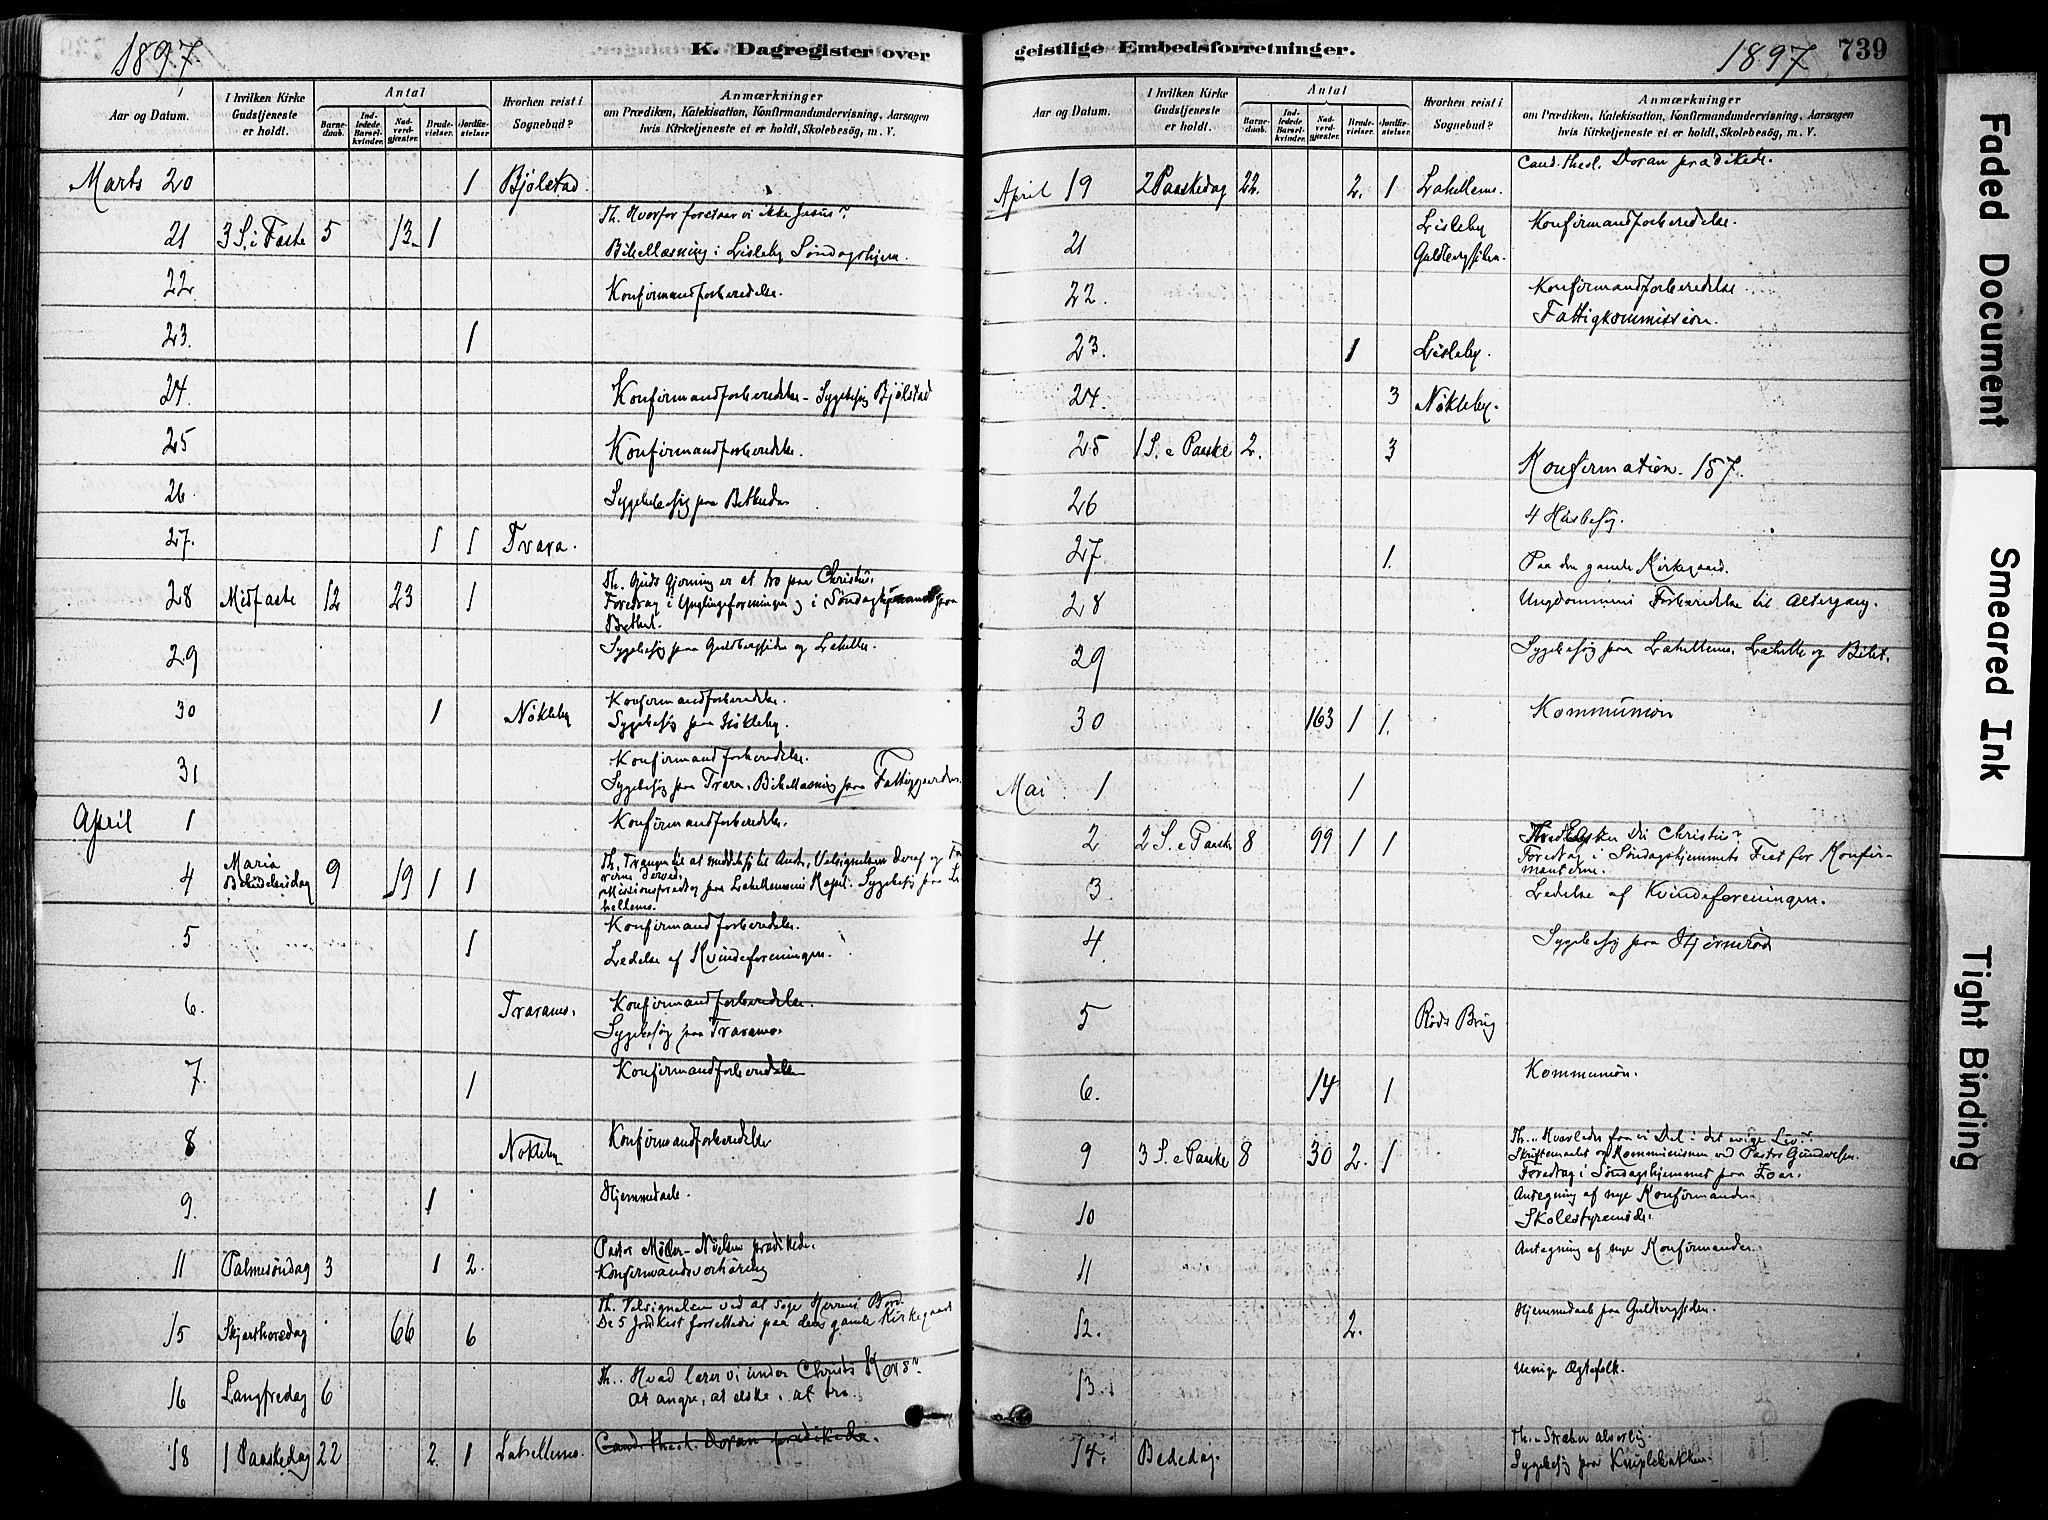 1897.
K. Dagregister over
Aar og Datum.
I hvilken Kirke Gudstjeneste er holdt.
Antal
Barnedaab.
Indledede Barselkvinder.
Nadverdgjæster.
Brudevielser.
Jordfæstelser
Hvorhen reist i Sognebud?
Anmærkninger
om Prædiken, Katekisation, Konfirmandundervisning, Aarsagen
hvis Kirketjeneste et er holdt, Skolebesög, m. V.
Marts 20 1 Bjølstad.
Th. Hvorfor foretaer vi ikke Jesus?
21 3 S. i Faste 5 13 1
Bibellæsning i Lisleby Søndagshjem.
22. Konfirmandforberedelse.
23. 1
24. Konfirmandforberedelse - Sygebesøg Bjølstad
25 Konfirmandforberedelse.
26. Sygebesøg paa
27. 1 1 Trara.
Th. Guds Gjerning er at tro paa Christus.
28 Midfaste 12 23 1
Foredrag i Ynglingeforeningen og i paa
Bethel.
29 Sygebesøg paa Guldbergsiden og Lahelle.
30 1 Nøkleby Konfirmandforberedelse.
Sygebesøg paa Nøkleby.
31 Konfirmandforberedelse.
Sygebesøg paa Trara. Bibellæsning paa Fattiggaarden.
April 1 Konfirmandforberedelse.
4 Maria Bebudelsesdag 9 19 1 1
Th. Trangen til at meddele sig til Andre, Velsignelsen deraf og
derved.
Missionsforedrag paa Lahellemoens Kapel. Sygebesøg paa La-
hellemo.
5 1 Konfirmandforberedelse.
Ledelse af Kvindeforeningen.
6. Traramo. Konfirmandforberedelse.
Sygebesøg paa Traramo.
7. 1 Konfirmandforberedelse
8 Nøkleby Konfirmandforberedelse
9. 1 Hjemmedaab.
11 Palmesøndag 3 1 2. Pastor Møller-Nielsen prædikede.
Konfirmandoverhøring
15 Skjærthorsdag 66 6
Th. Velsignelsen ved at søge Herrens Bord
De 5 Jordfæst forrettedes paa den gamle Kirkegaard
16 Langfredag 6 Th. Hvad lærer vi under Christi Kors?
At angre, at elske, at tro.
18 1 Paaskedag 22 2. 1 Lahellemo. Cand. theol. Doran prædikede.
geistlige Embedsforretninger.
1897
739
Aar og Datum.
I hvilken Kirke Gudstjeneste er holdt.
Antal
Barnedaab.
Indledede Barselkvinder.
Nadverdgjæster.
Brudevielser.
Jordfæstelser
Hvorhen reist i Sognebud?
Anmærkninger
om Prædiken, Katekisation, Konfirmandundervisning, Aarsagen
hvis Kirketjeneste et er holdt, Skolebesög, m. V.
Cand. theol. Doran prædikede.
April 19 2 Paaskedag 22. 2. 1 Lahellemo.
21 Lisleby Konfirmandforberedelse.
Guldbergsiden.
22. Konfirmandforberedelse.
Fattigkommission.
23. 1 Lisleby.
24. 3 Nøkleby.
25 1 S. e Paaske 2. 3 Konfirmation. 157.
26 4 Husbesøg.
27. 1. Paa den gamle Kirkegaard.
28 Ungdommens Forberedelse til Altergang.
29 Sygebesøg paa Lahellemo. Lahelle og
30 163 1 1. Kommunion
Mai 1 1
2 2 S. e Paaske 8 99 1 1 Du Christus?
Foredrag i Søndagshjemmets Fest for Konfir-
manterne.
3. Ledelse af Kvindeforeningen.
4. Sygebesøg paa
5 Røds Brug
6. 14 1 Kommunion.
Th. Hvorledes faa vi Del i det evige Liv?
9 3 S. e Paaske 8 30 2. 1
Skriftemaalet og Kommunionen ved Pastor Gundersen.
Foredrag i Søndagshjemmet paa Zoar.
10 Antegning af nye Konfirmander
Skolestyremøde.
11 Antegning af nye Konfirmander.
12. 2. Hjemmedaab paa Guldbergsiden.
13. Uenige Ægtefolk.
14. Bededag. Th. Stræber alvorlig.
Sygebesøg paa Kniplebakken.
Faded Document
Smeared Ink
Tight Binding